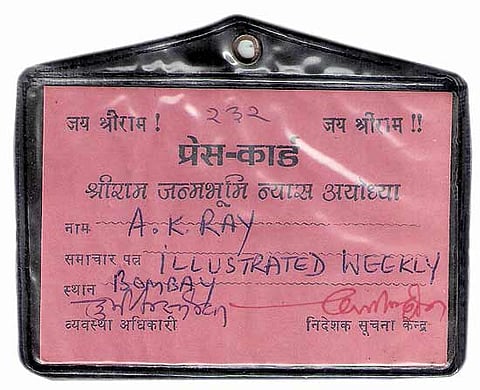 जय श्रीराम ! २३२ जय श्रीराम !!
प्रेस-कार्ड
श्रीराम जन्मभूमि न्यास अयोध्या
नाम A. K. RAY
समाचार पत्र ILLUSTRATED WEEKLY
स्थान BOMBAY
व्यवस्था अधिकारी निदेशक सूचना केन्द्र